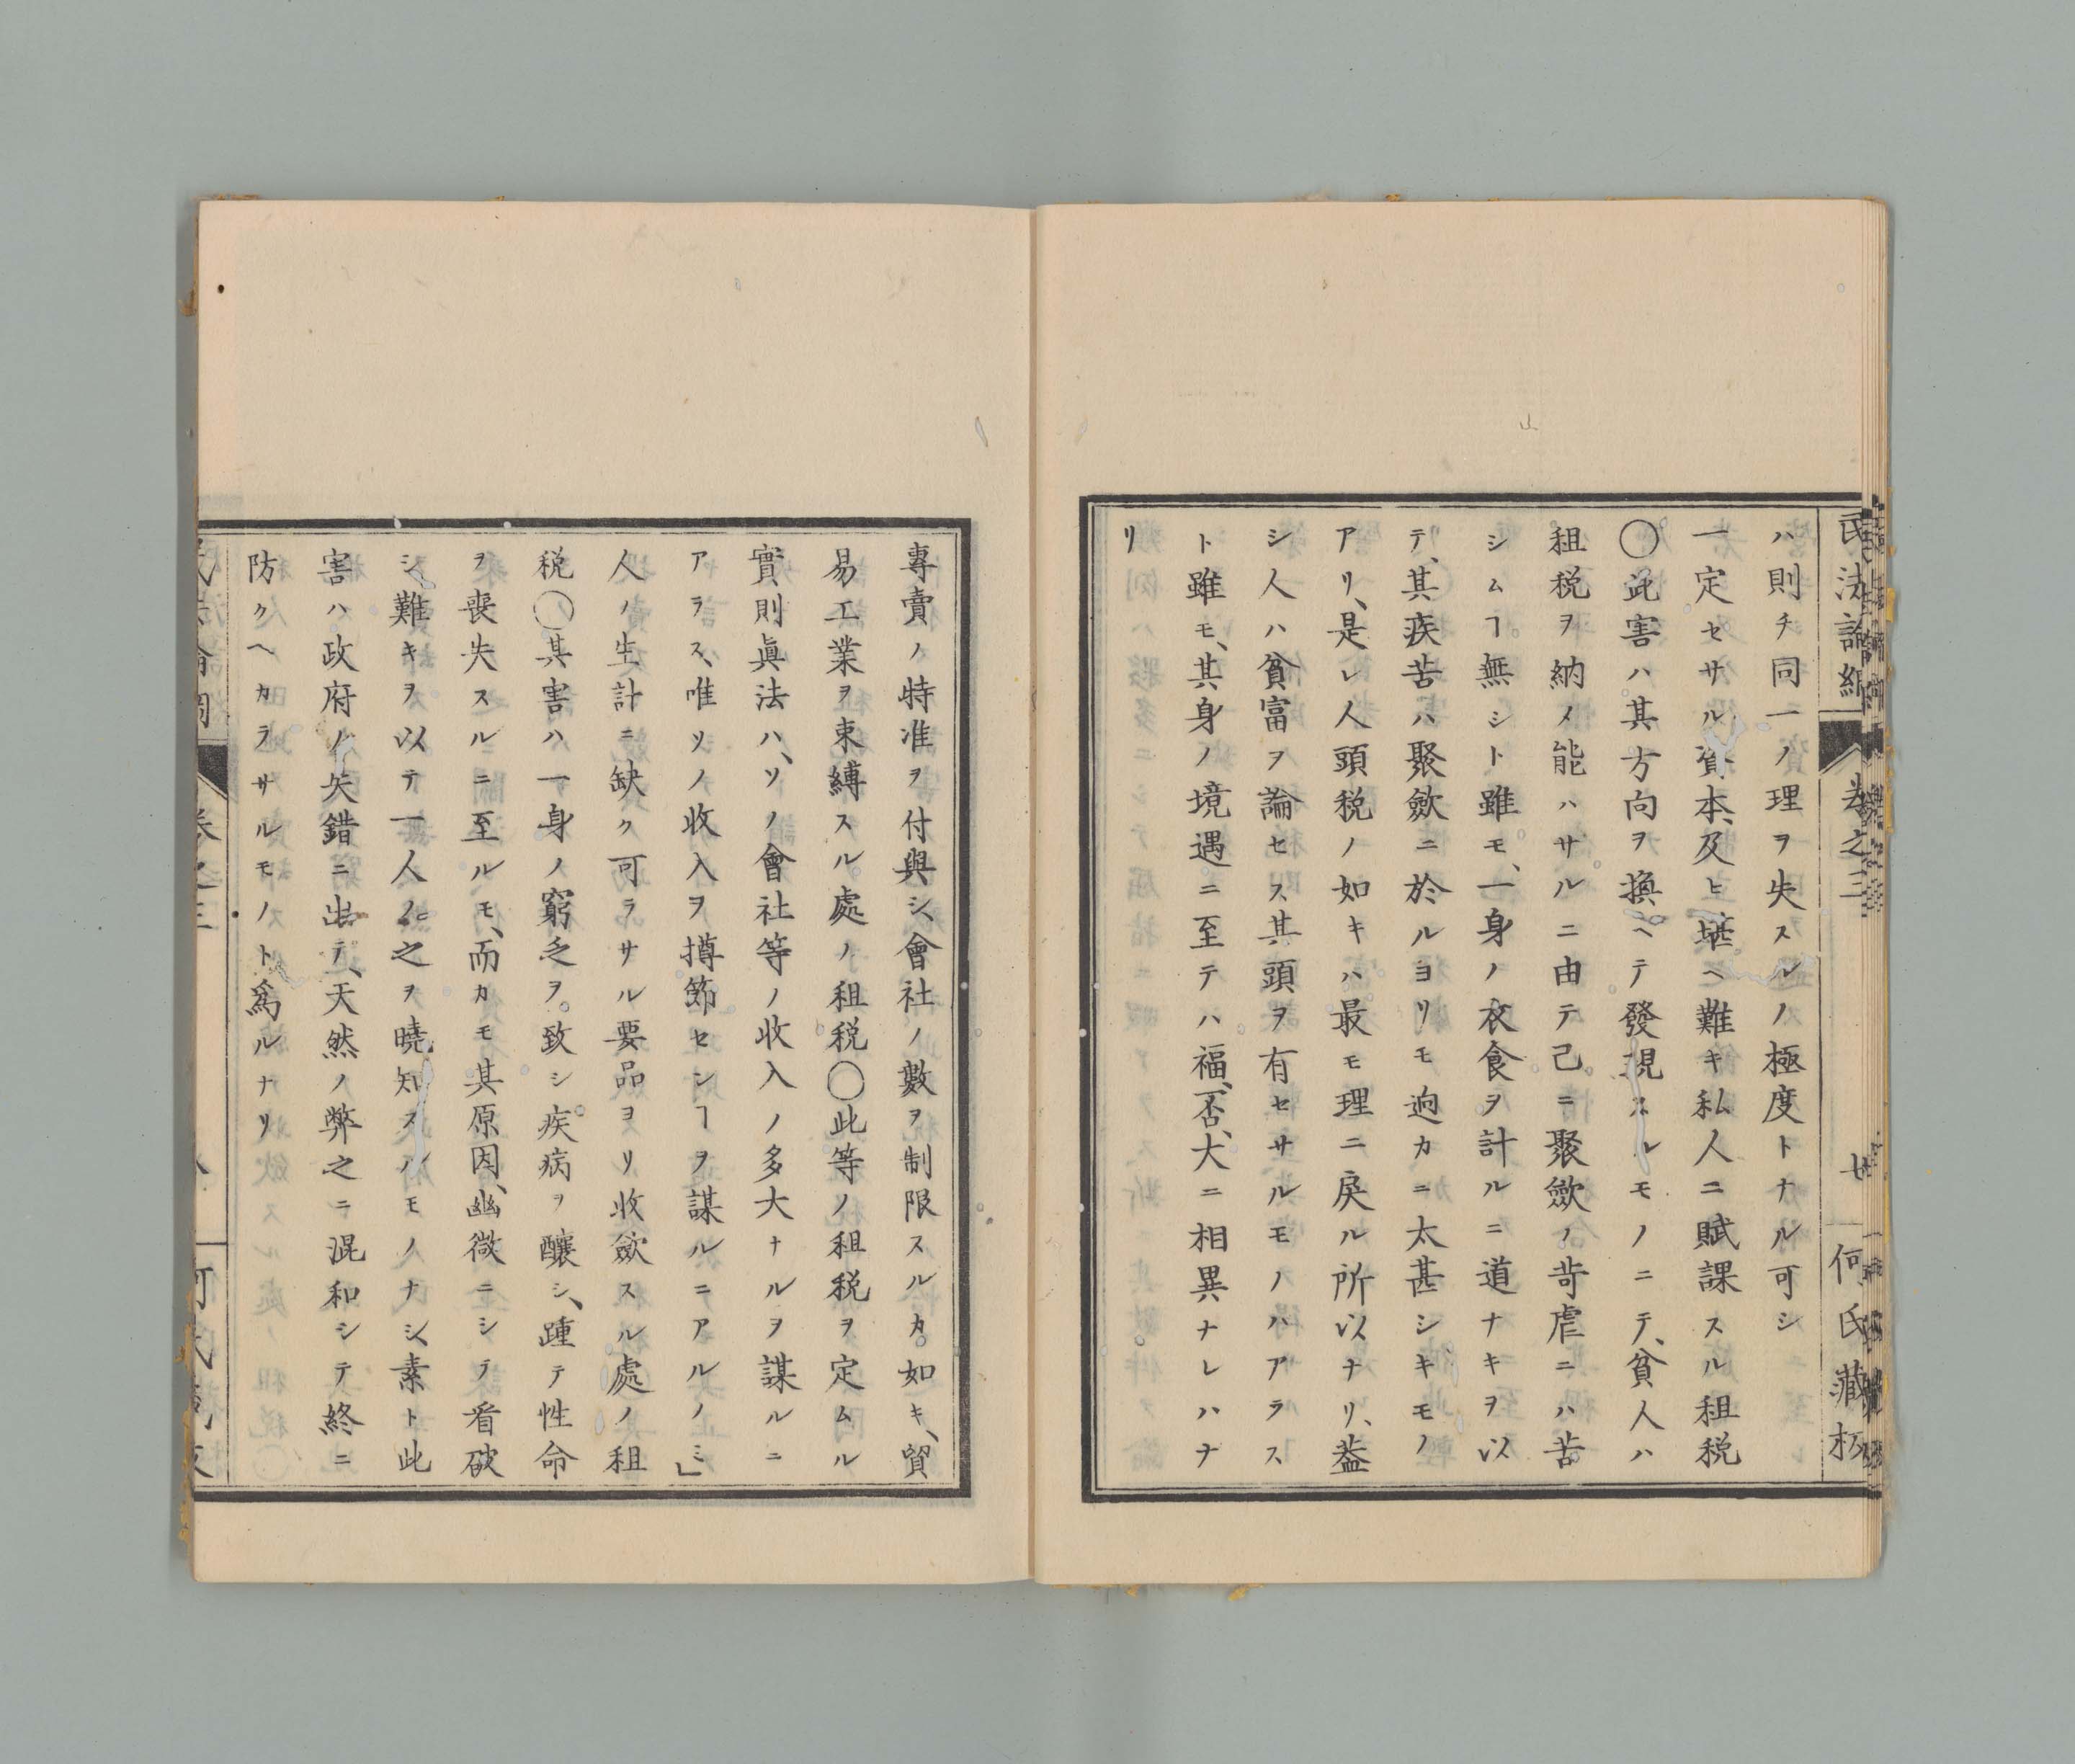 民法論綱 卷之三 廿 何氏藏板
ハ則チ同一ノ理ヲ失スルノ極度トナル可シ
一定セサル資本、及ヒ堪ヘ難キ私人ニ賦課スル租税
〇此害ハ其方向ヲ換ヘテ發現スルモノニテ、貧人ハ
租税ヲ納メ能ハサルニ由テ己ニ聚歛ノ苛虐ニハ苦
シムヿ無シト雖モ、一身ノ衣食ヲ計ルニ道ナキヲ以
テ、其疾苦ハ聚歛ニ於ルヨリモ逈カニ太甚シキモノ
アリ、是レ人頭税ノ如キハ最モ理ニ戾ル所以ナリ、葢
シ人ハ貧富ヲ論セス、其頭ヲ有セサルモノハアラス
ト雖モ、其身ノ境遇ニ至テハ福、否、大ニ相異ナレハナ
リ
專賣ノ特准ヲ付與シ、會社ノ數ヲ制限スルカ。如キ、貿
易工業ヲ束縛スル處ノ租税〇此等ノ租税ヲ定ムル
實則眞法ハ、ソノ會社等ノ收入ノ多大ナルヲ謀ルニ
アラス、唯ソノ收入ヲ撙節センヿヲ謀ルニアルノミ」
人ノ生計ニ缺ク可ラサル要品ヨリ收歛スル處ノ租
税〇其害ハ一身ノ窮乏ヲ。致シ疾病ヲ釀シ、踵テ性命
ヲ喪失スルニ至ルモ、而カモ其原因、幽微ニシテ看破
シ難キヲ以テ一人ノ之ヲ曉知スルモノナシ、素ト此
害ハ政府ノ失錯ニ出テ、天然ノ弊之ニ混和シテ終ニ
防クヘカラサルモノト爲ルナリ
卷之三